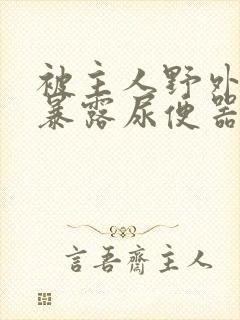 被主人野外
暴露尿便器
言吾齋主人